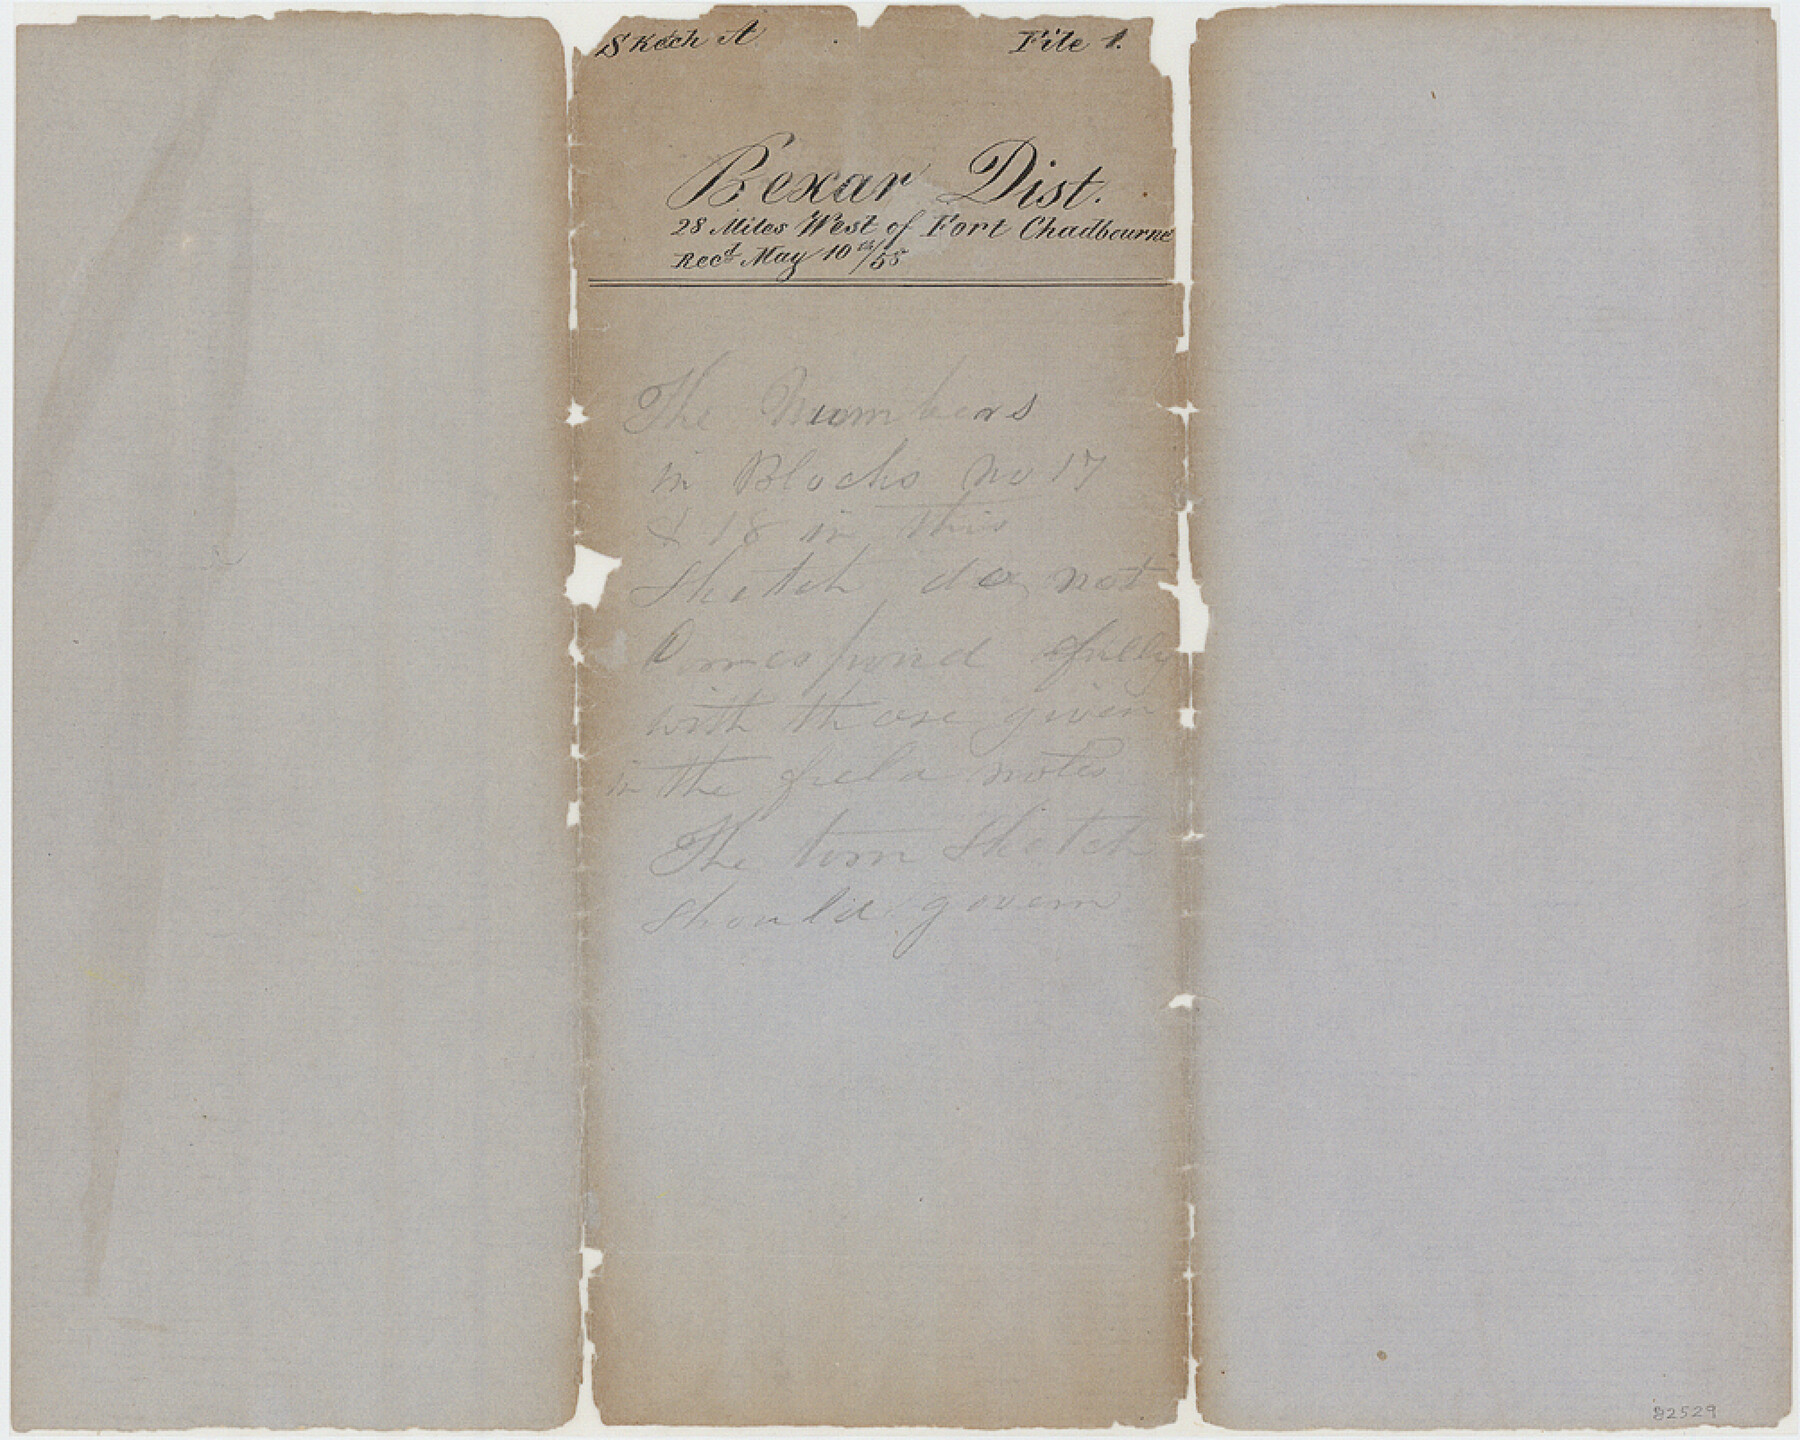 Skech A File 1.
Bexar Dist.
28 Miles West of Fort Chadbourne
Recd May 10th/55
The Numbers
in Blocks no 17
& 18 in this
Sketch do not
Correspond fully
with those given
in the field notes
The torn Sketch
should govern
82529